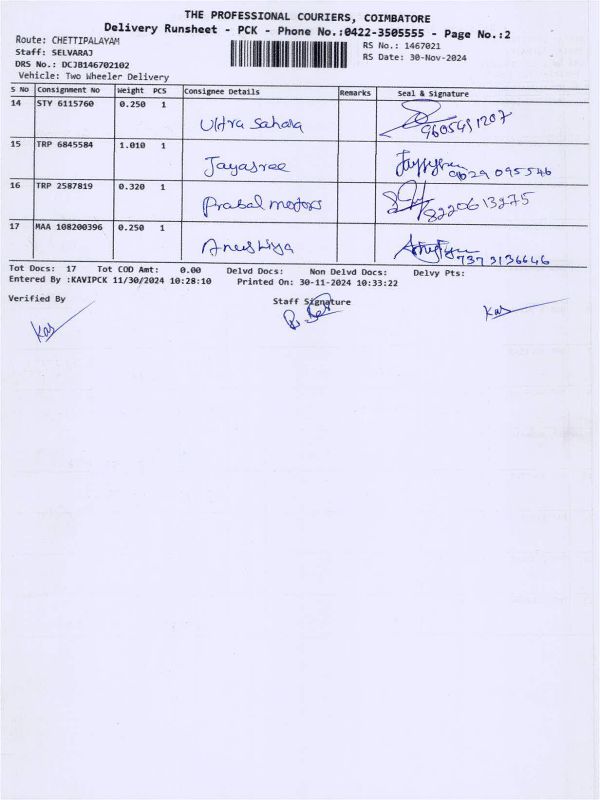 THE PROFESSIONAL COURIERS, COIMBATORE
Delivery Runsheet - PCK - Phone No.:0422-3505555 - Page No.:2
Route: CHETTIPALAYAM
RS No.: 1467021
Staff: SELVARAJ
RS Date: 30-Nov-2024
DRS No.: DCJB146702102
Vehicle: Two Wheeler Delivery
S No Consignment No Weight PCS Consignee Details Remarks Seal & Signature
14 STY 6115760 0.250 1
Ultra Sahara 9605491207
15 TRP 6845584 1.010 1
Jayasree 9629095546
16 TRP 2587819 0.320 1
Prabal motors 8220613275
17 MAA 108200396 0.250 1
Anushiya 7373136646
Tot Docs: 17 Tot COD Amt: 0.00 Delvd Docs: Non Delvd Docs: Delvy Pts:
Entered By :KAVIPCK 11/30/2024 10:28:10 Printed On: 30-11-2024 10:33:22
Verified By Staff Signature